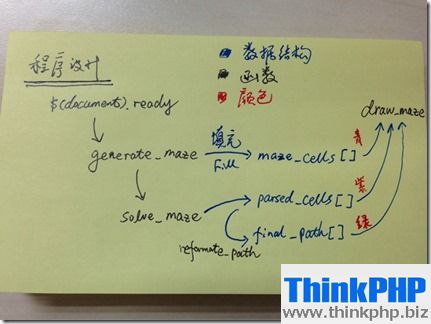 程序设计
数据结构
函数
颜色
$(document).ready
draw_maze
generate_maze
填充
Fill
maze_cells[]
青
solve_maze
parsed_cells[]
紫
reformate_path
final_path[]
绿
ThinkPHP
www.thinkphp.biz